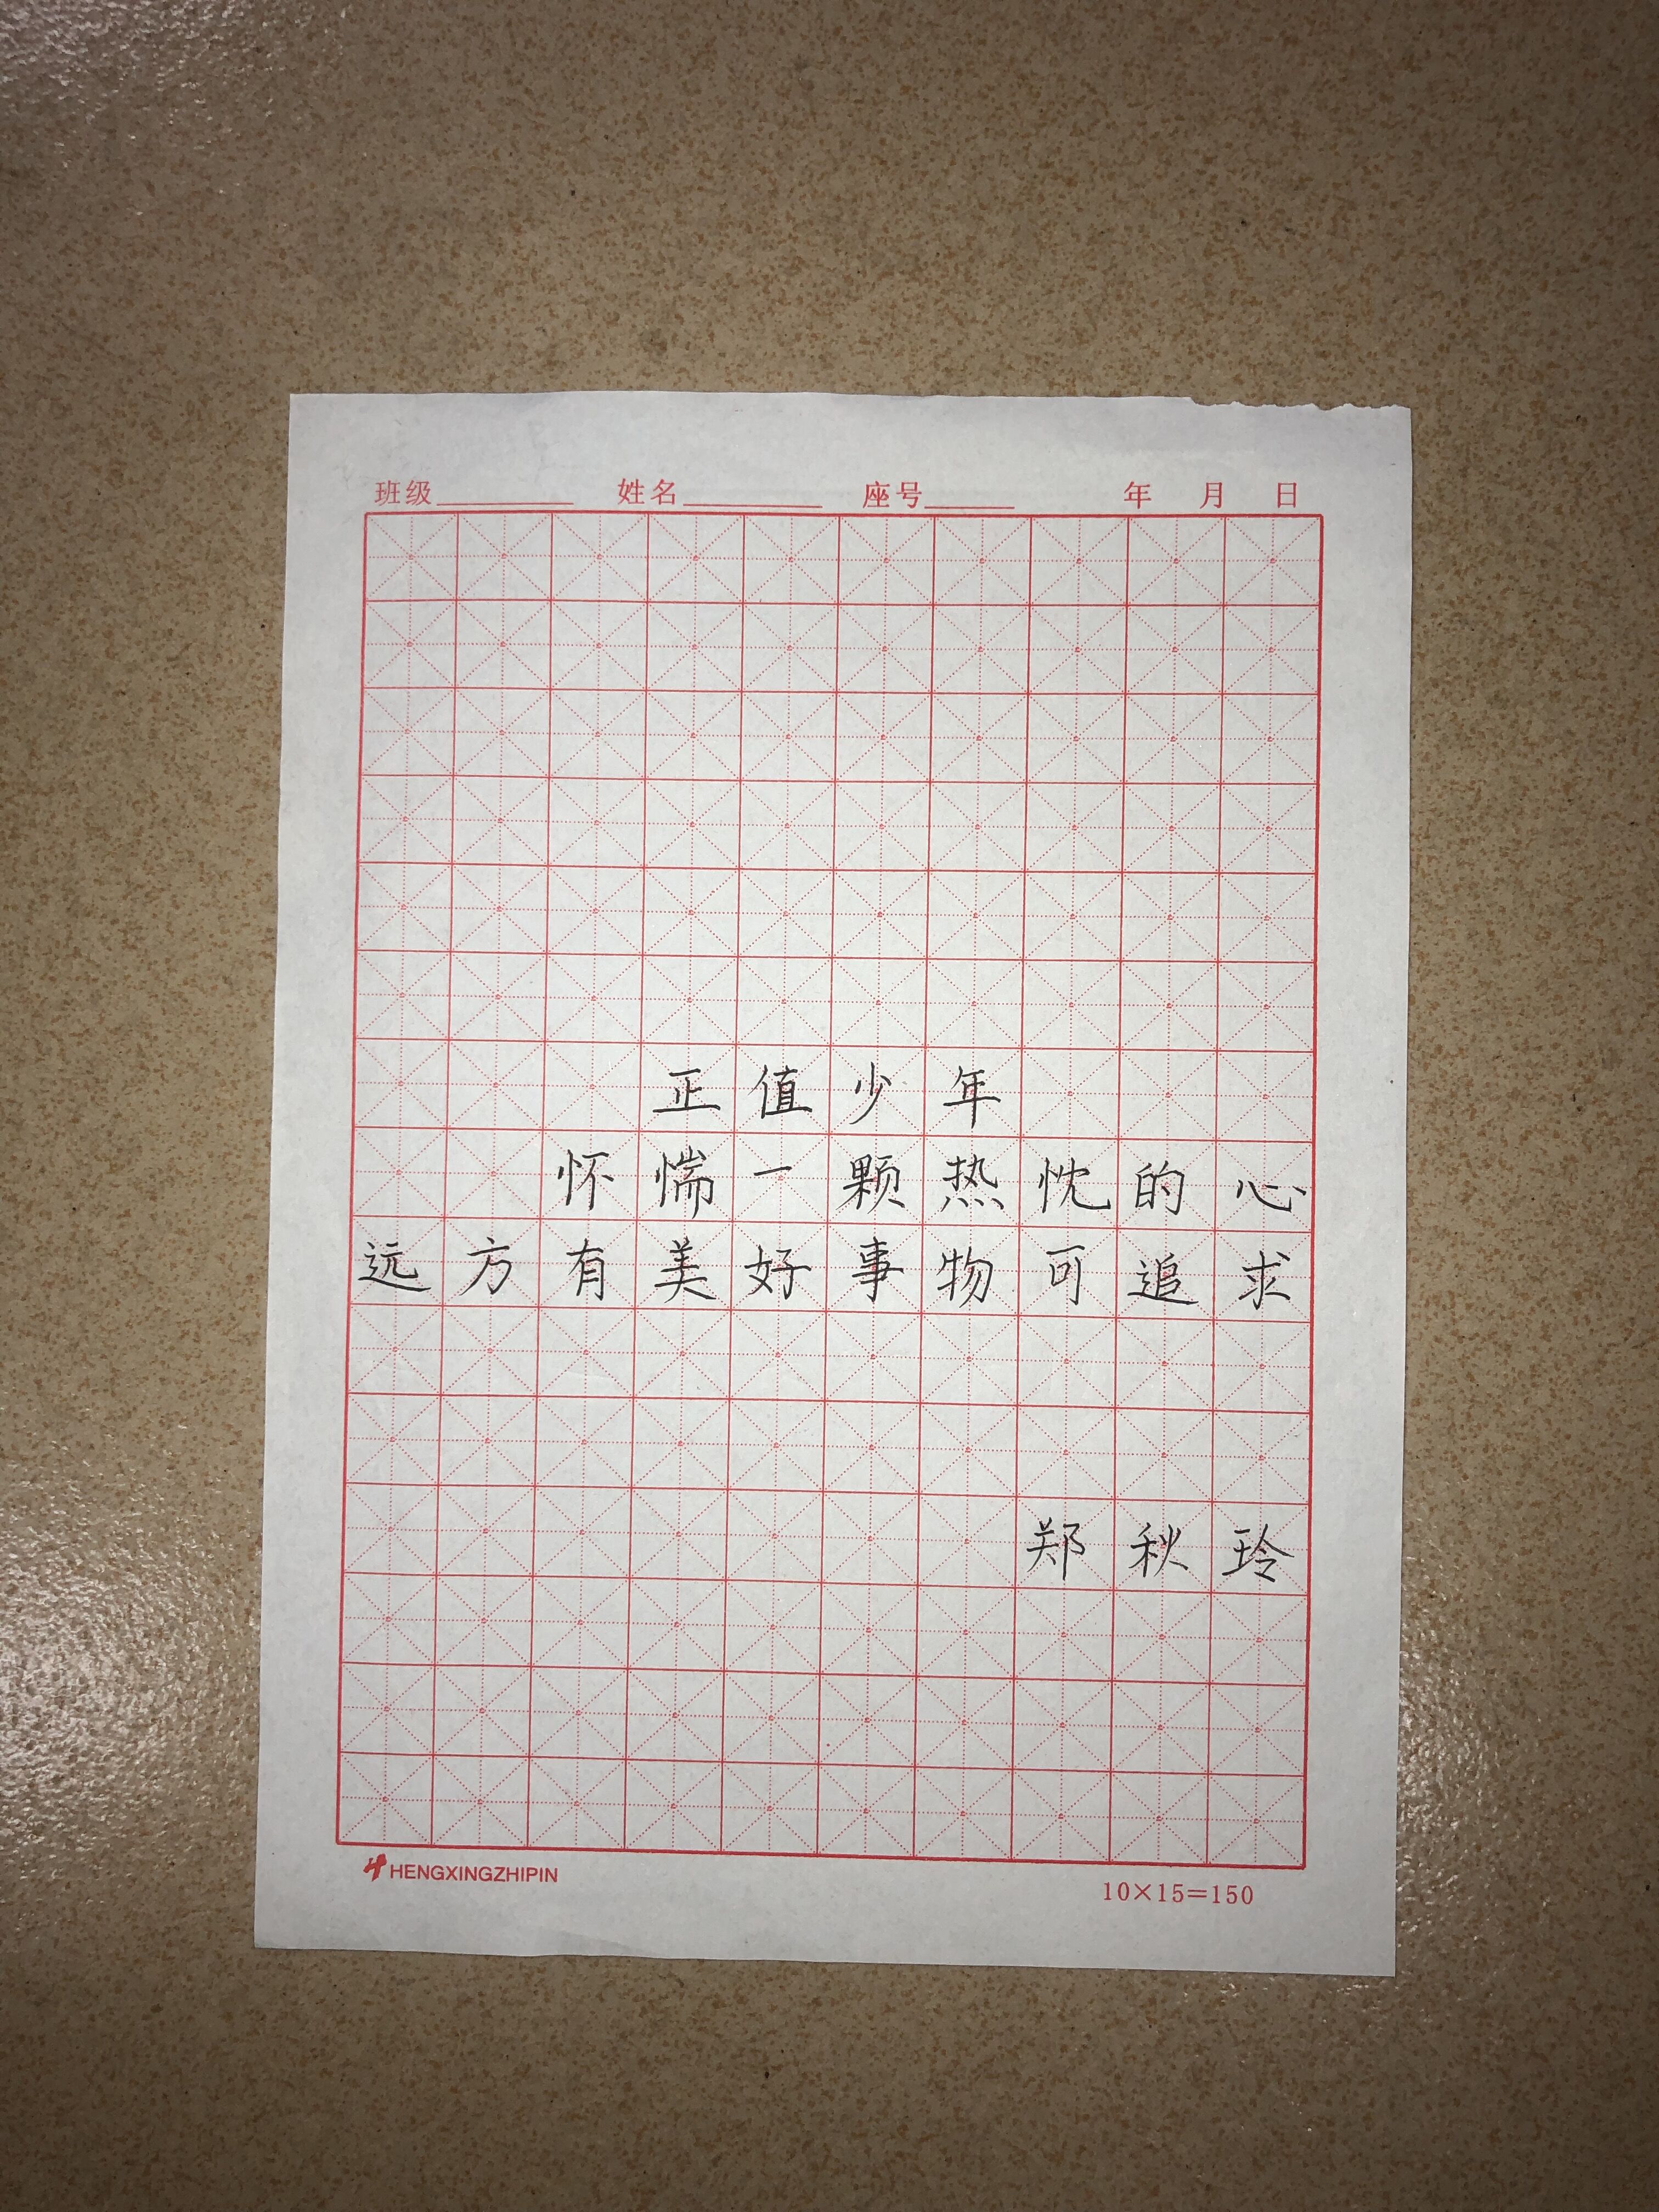 班级 姓名 座号 年 月 日
正值少年
怀惴一颗热忱的心
远方有美好事物可追求
郑秋玲
HENGXINGZHIPIN
10×15=150